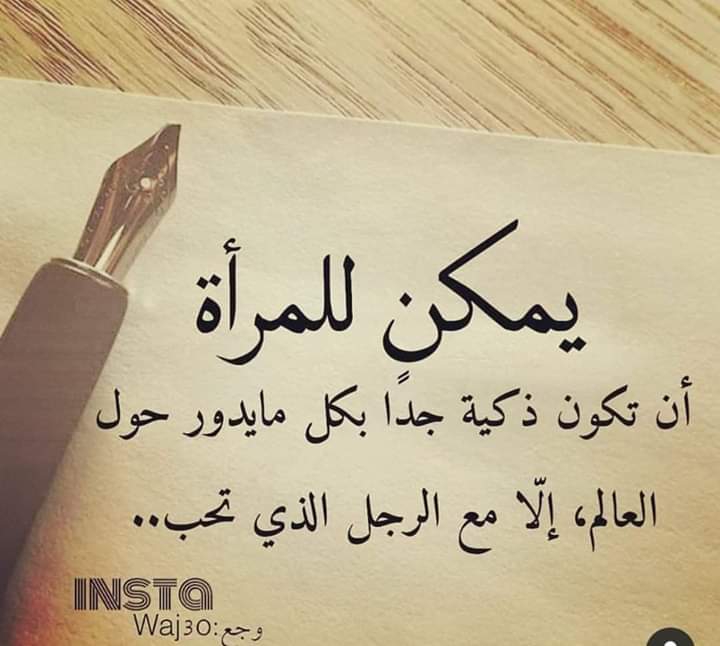 يمكن للمرأة
أن تكون ذكية جدًا بكل مايدور حول
العالم، إلّا مع الرجل الذي تحب..
INSTA
وجع:Waj3o